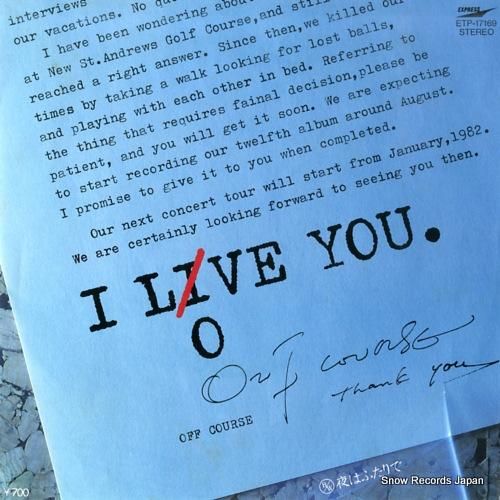 interviews
our vacations. No
I have been wondering about
at New St.Andrews Golf Course,and still
reached a right answer. Since then,we killed our
times by taking a walk looking for lost balls,
and playing with each other in bed. Referring to
the thing that requires fainal decision,please be
patient, and you will get it soon. We are expecting
to start recording our twelfth album around August.
I promise to give it to you when completed.
Our next concert tour will start from January,1982.
We are certainly looking forward to seeing you then.
I LIVE YOU.
O
Off course
thank you
OFF COURSE
B/W 夜はふたりで
¥700
EXPRESS
ETP-17169
STEREO
Snow Records Japan